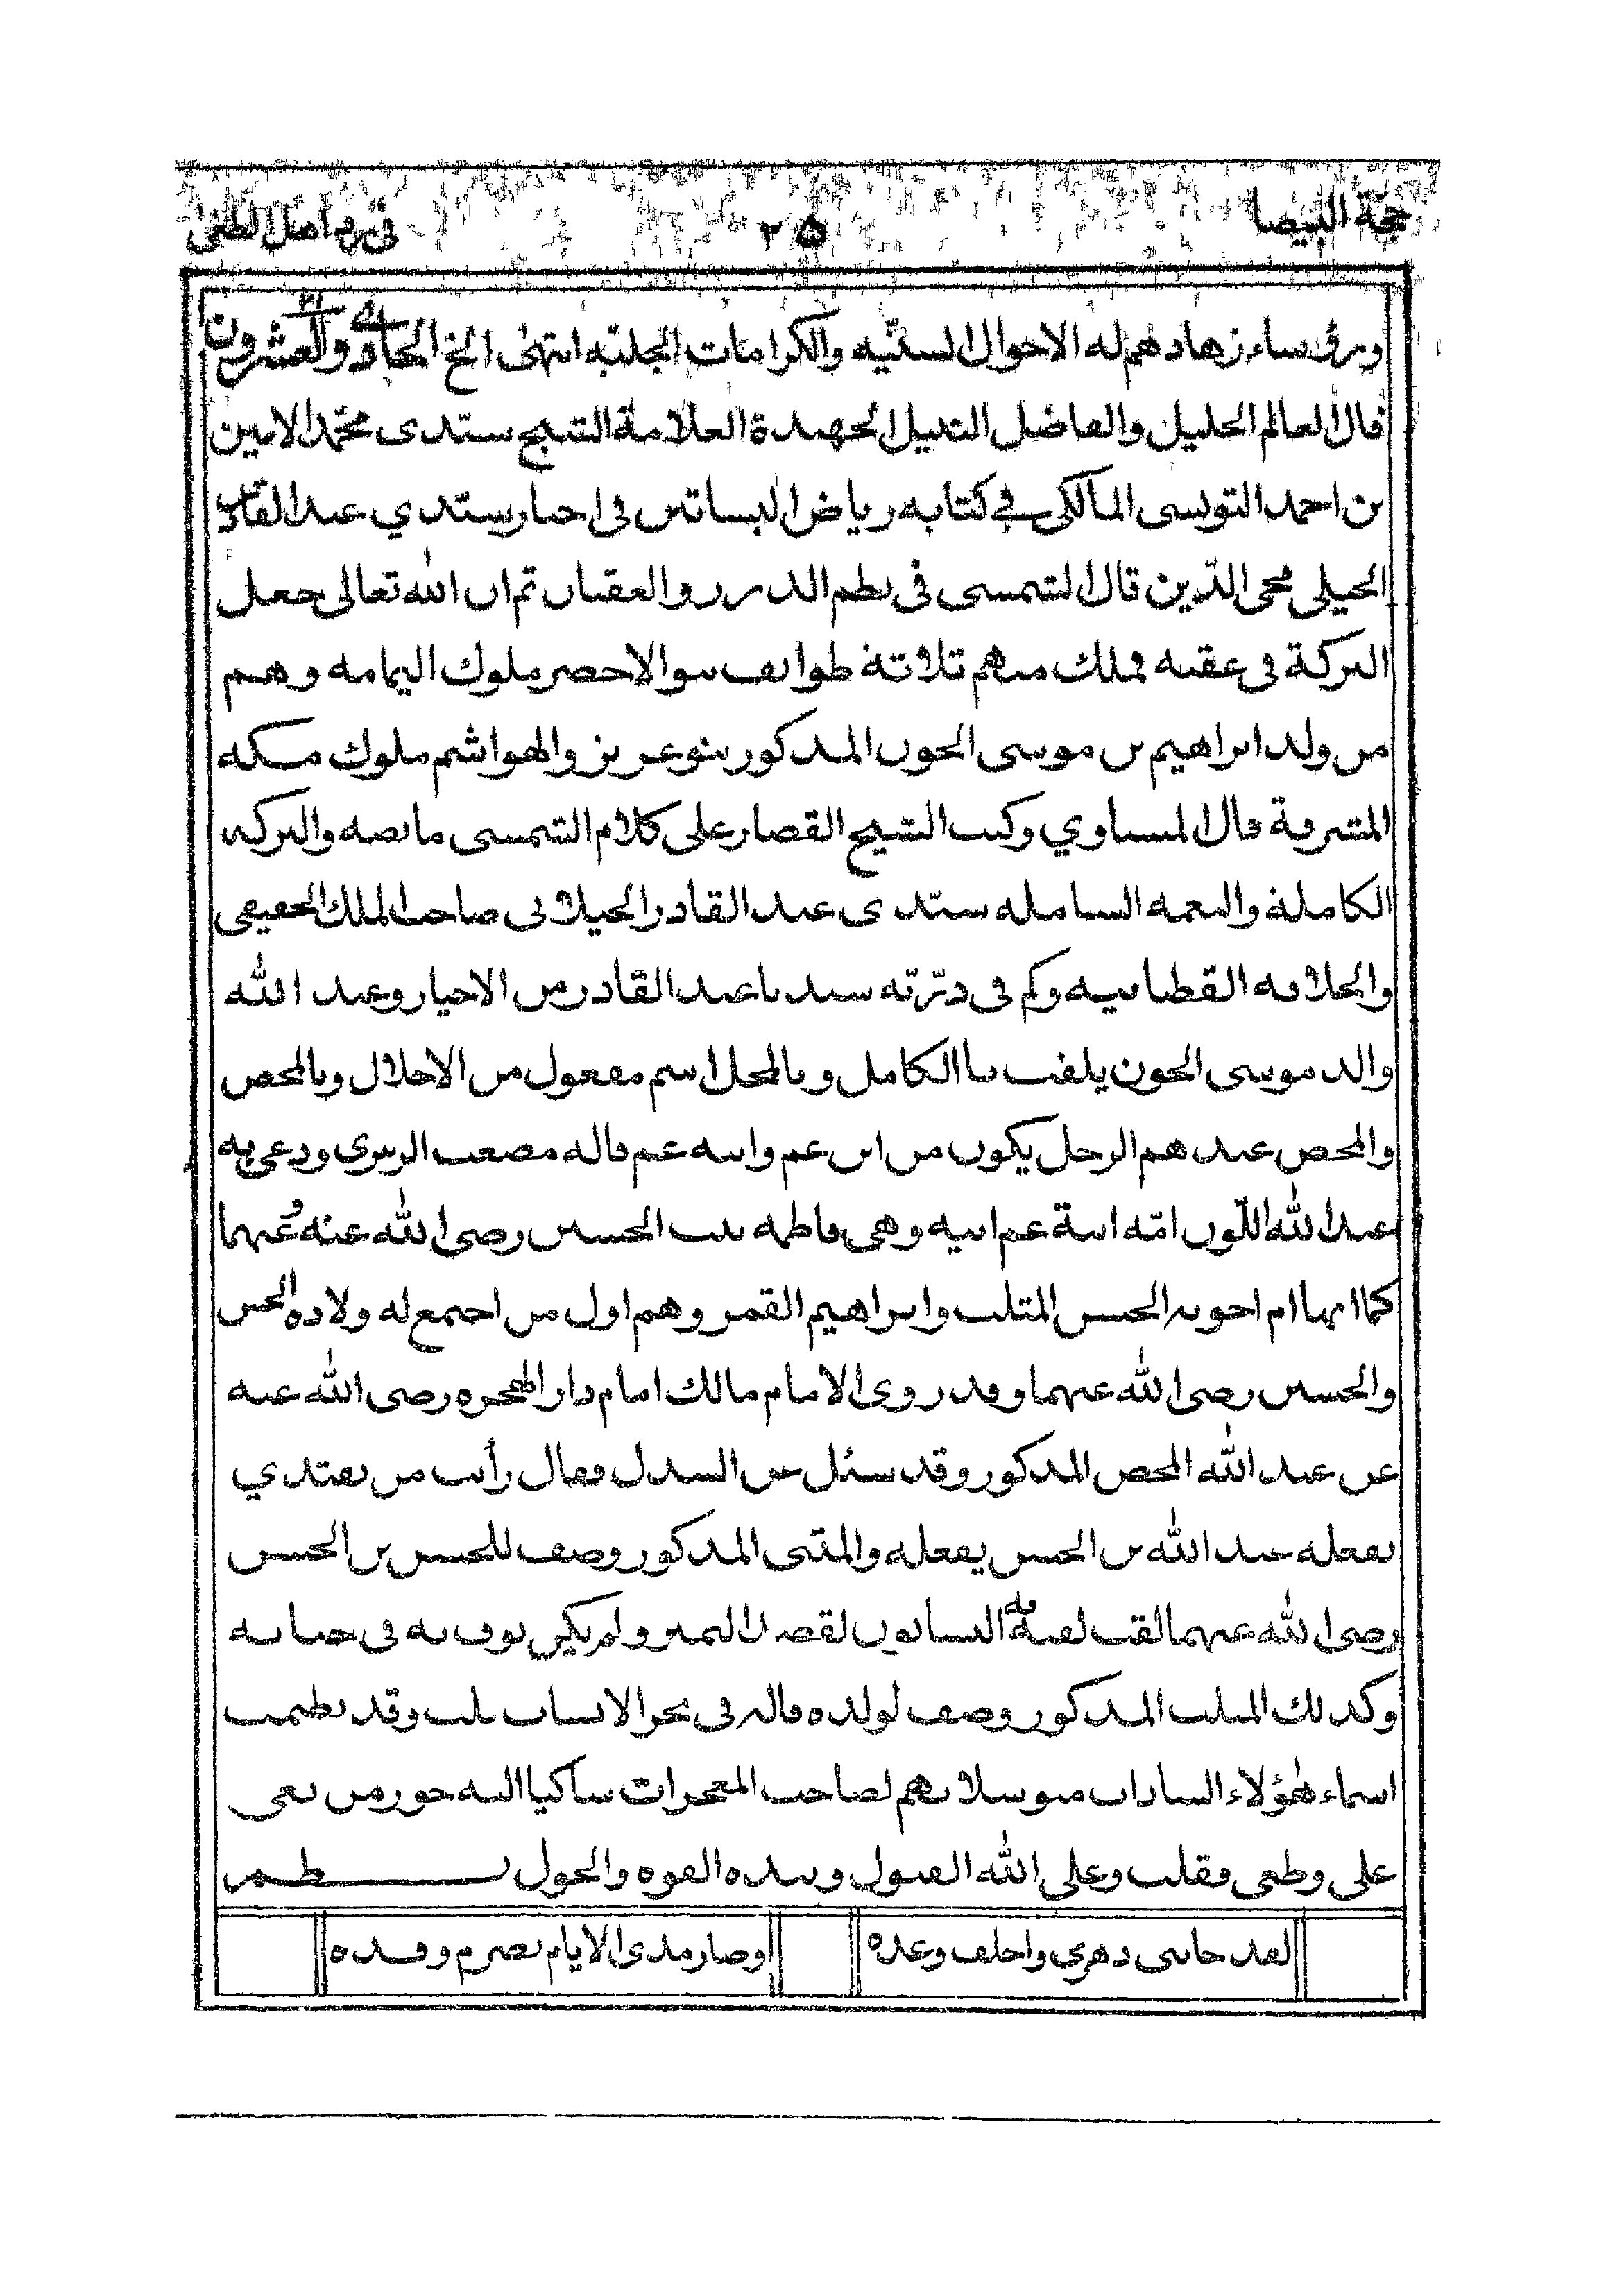 حجة البيضا ٢٥ في رد اهل الطغى
ورؤساء زهادهم له الاحوال السنيه والكرامات الجليه انتهى الخ الحادي والعشرون
قال العالم الجليل والفاضل النبيل الجهبذة العلامة الشيخ سيدى محمد الامين
بن احمد التونسى المالكي في كتابه رياض البساتين في اخبار سيدي عبد القادر
الجيلى محى الدّين قال الشمسى في نظم الدرر والعقيان ثم ان الله تعالى جعل
البركة في عقبه فملك منهم ثلاثة طوائف بنو الاخضر ملوك اليمامه وهم
من ولد ابراهيم بن موسى الجون المذكور بنو عزيز والهواشم ملوك مكه
المشرفة قال المساوي وكتب الشيخ القصار على كلام الشمسى ما نصه والبركه
الكاملة والنعمه الشامله سيدى عبد القادر الجيلانى صاحب الملك الحقيقى
والخلافه القطبانيه وكم فى ذرّيّته سيدنا عبد القادر من الاخيار وعبد الله
والد موسى الجون يلقب بالكامل وبالمجل اسم مفعول من الاجلال وبالمحض
والمحض عندهم الرجل يكون من ابن عم وابنه عم قاله مصعب الزبيرى ودعى به
عبد الله اللّون امّه ابنة عم ابيه وهى فاطمه بنت الحسين رضى الله عنه وعنهما
كما انها ام اخويه الحسن المثلث وابراهيم القمر وهم اول من اجتمع له ولاده الحسن
والحسين رضى الله عنهما وقد روى الامام مالك امام دار الهجره رضى الله عنه
عن عبد الله المحض المذكور وقد سئل عن السدل فقال رأيت من يقتدي
بفعله عبد الله بن الحسن يفعله والمثنى المذكور وصف للحسن بن الحسن
رضى الله عنهما لقب لقبه به النسابون لقصد التميز ولم يكن يوصف به فى حياته
وكذلك المثلث المذكور وصف لولده قاله فى بحر الانساب قلت وقد نظمت
اسماء هؤلاء السادات متوسلا بهم لصاحب المعجزات شاكيا اليه جور من بغى
على وطنى فقلت وعلى الله القبول وبيده القوه والحول نظم
لقد خاننى دهرى واخلف وعده اوصار مدى الايام يصرم وقده